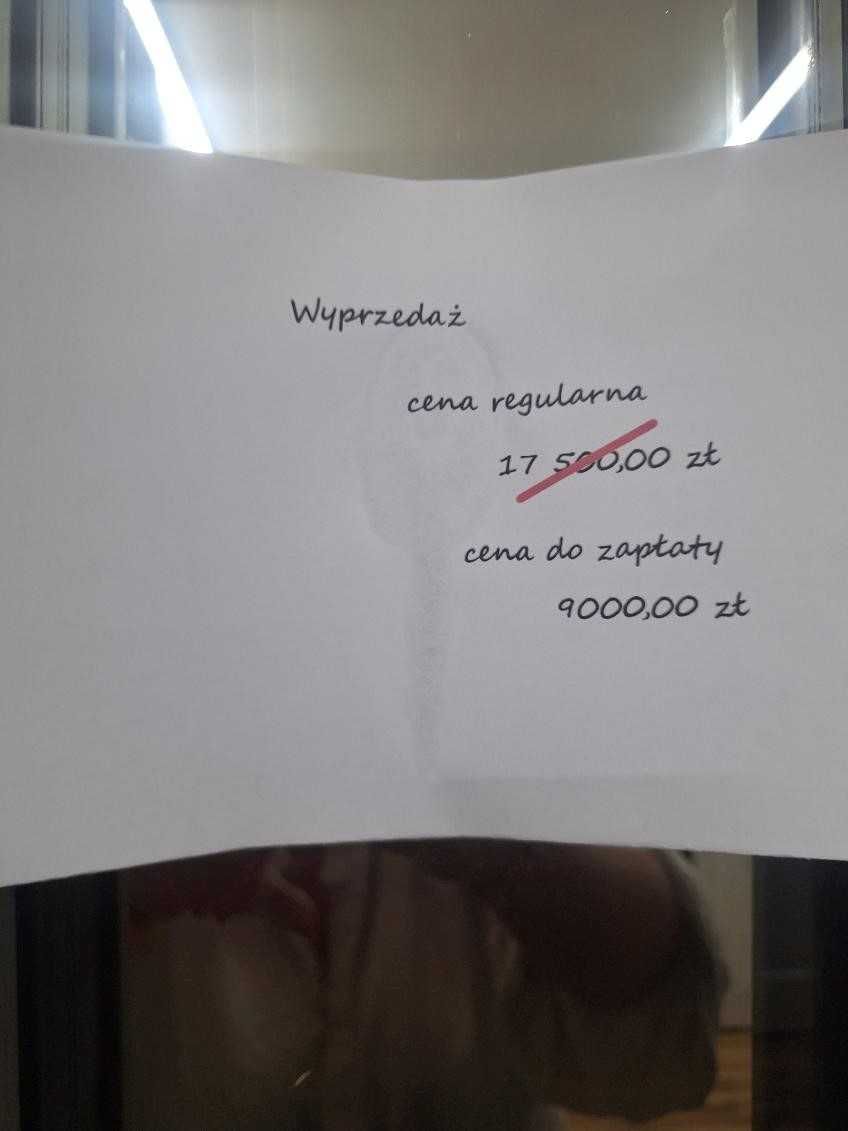 Wyprzedaż
cena regularna
17 500,00 zł
cena do zapłaty
9000,00 zł